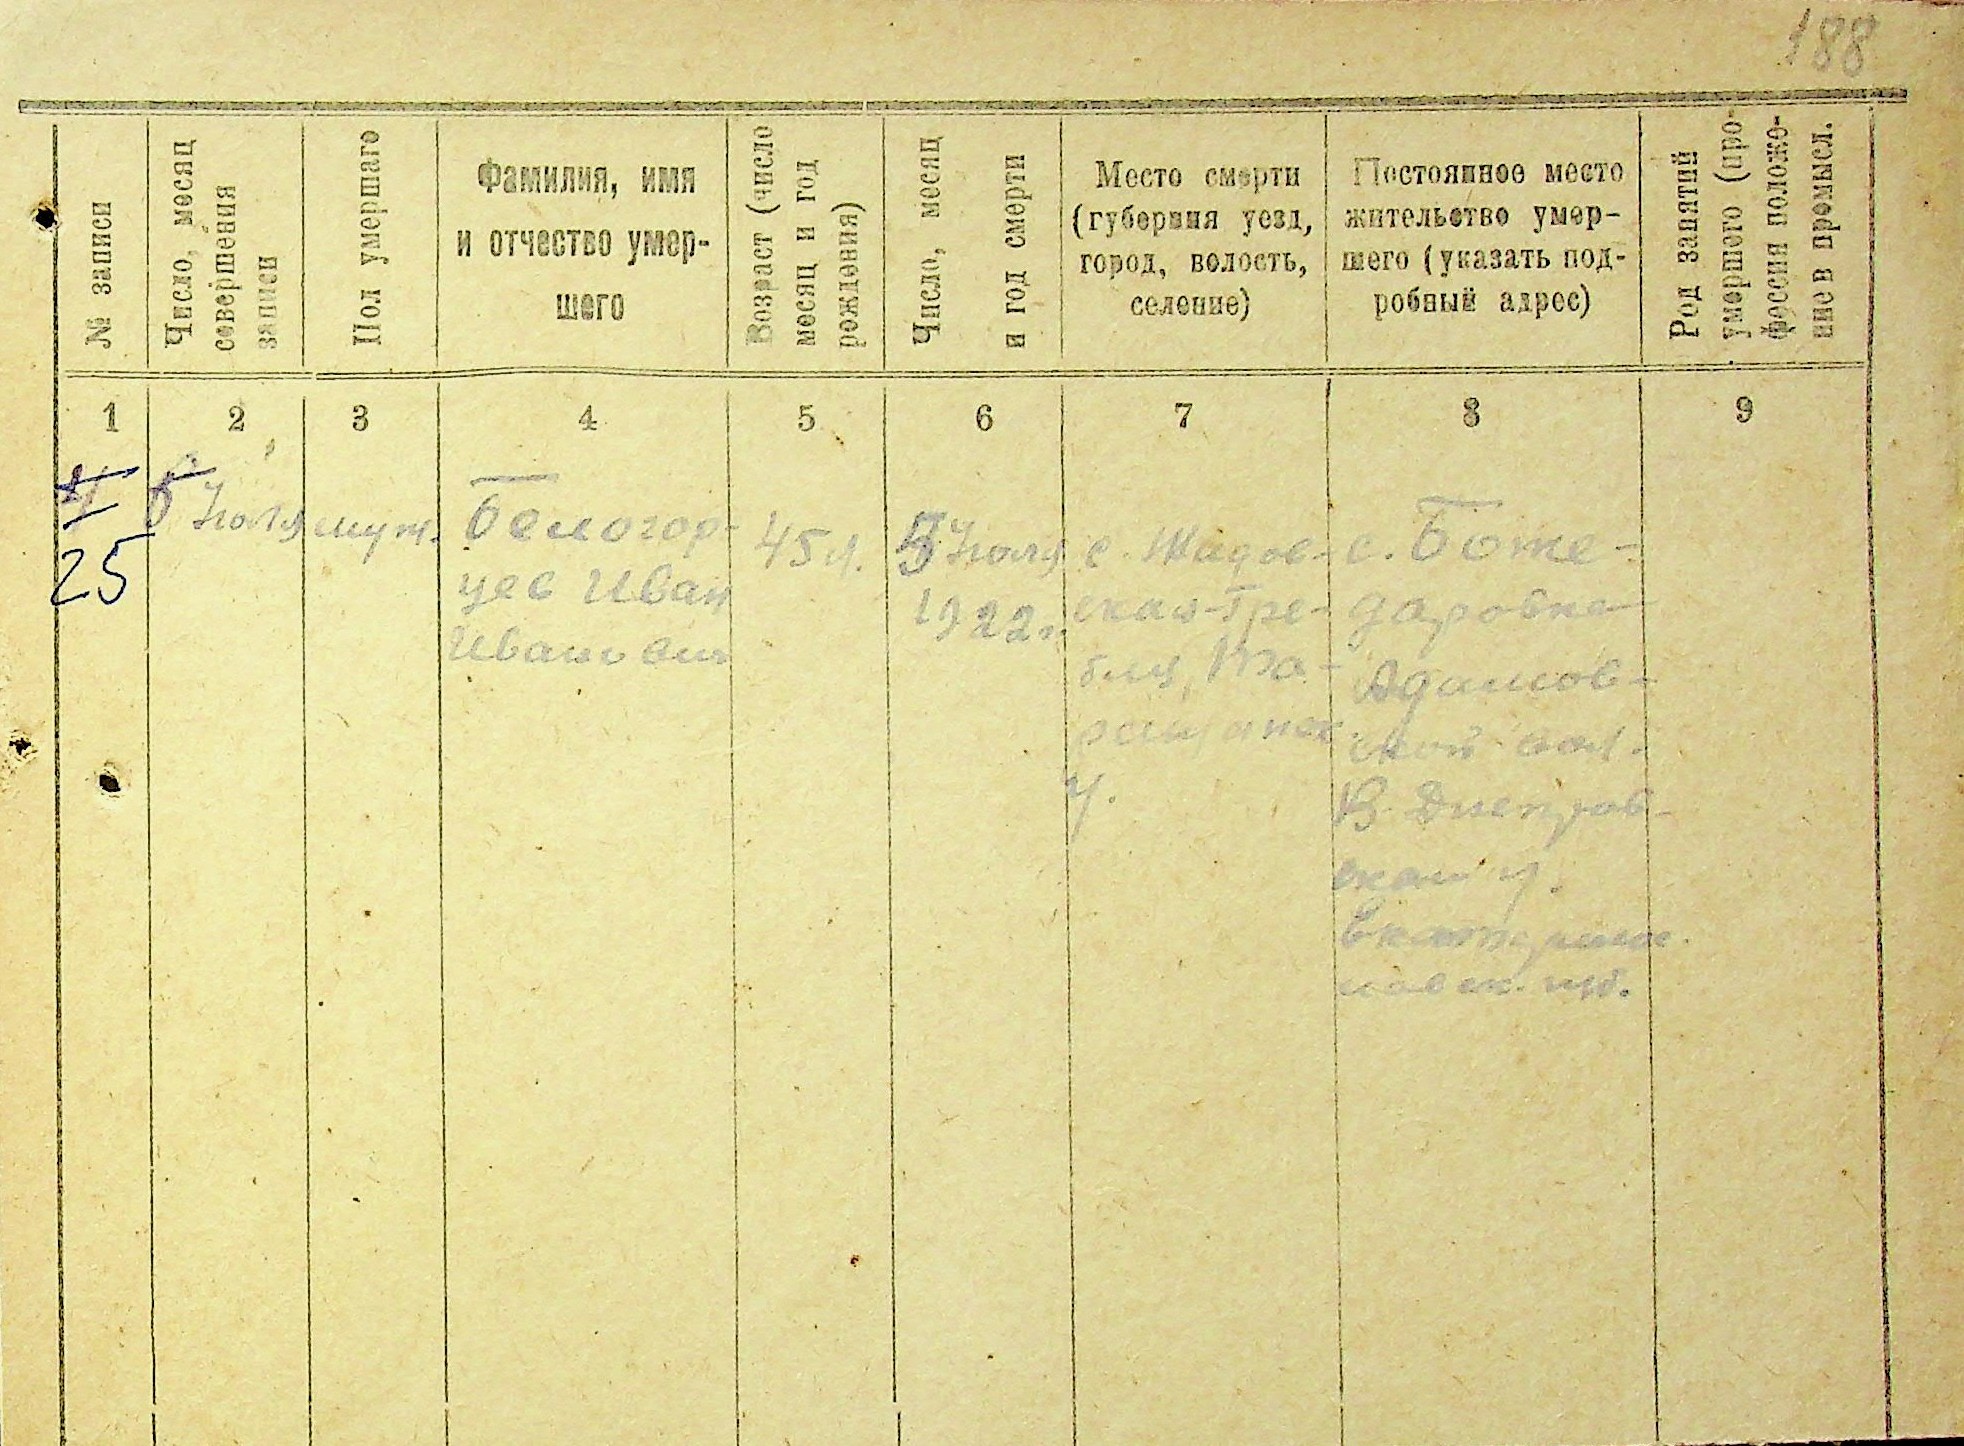 188
№ записи
Число, месяц
совершения
записи
Пол умершаго
Фамилия, имя
и отчество умер-
шего
Возраст (число
месяц и год
рождения)
Число, месяц
и год смерти
Место смерти
(губерния уезд,
город, волость,
селение)
Постоянное место
жительство умер-
шего (указать под-
робный адрес)
Род занятий
умершего (про-
фессия положе-
ние в промысл.
1 2 3 4 5 6 7 8 9
25
6 Июля
муж.
Белогор-
цев Иван
Иванович
45 л.
5 Июля
1922 г.
с.
у.
с. Боже-
даровка
Адамов-
ской вол.
В. Днепров-
ского у.
Екатерино-
славск. губ.